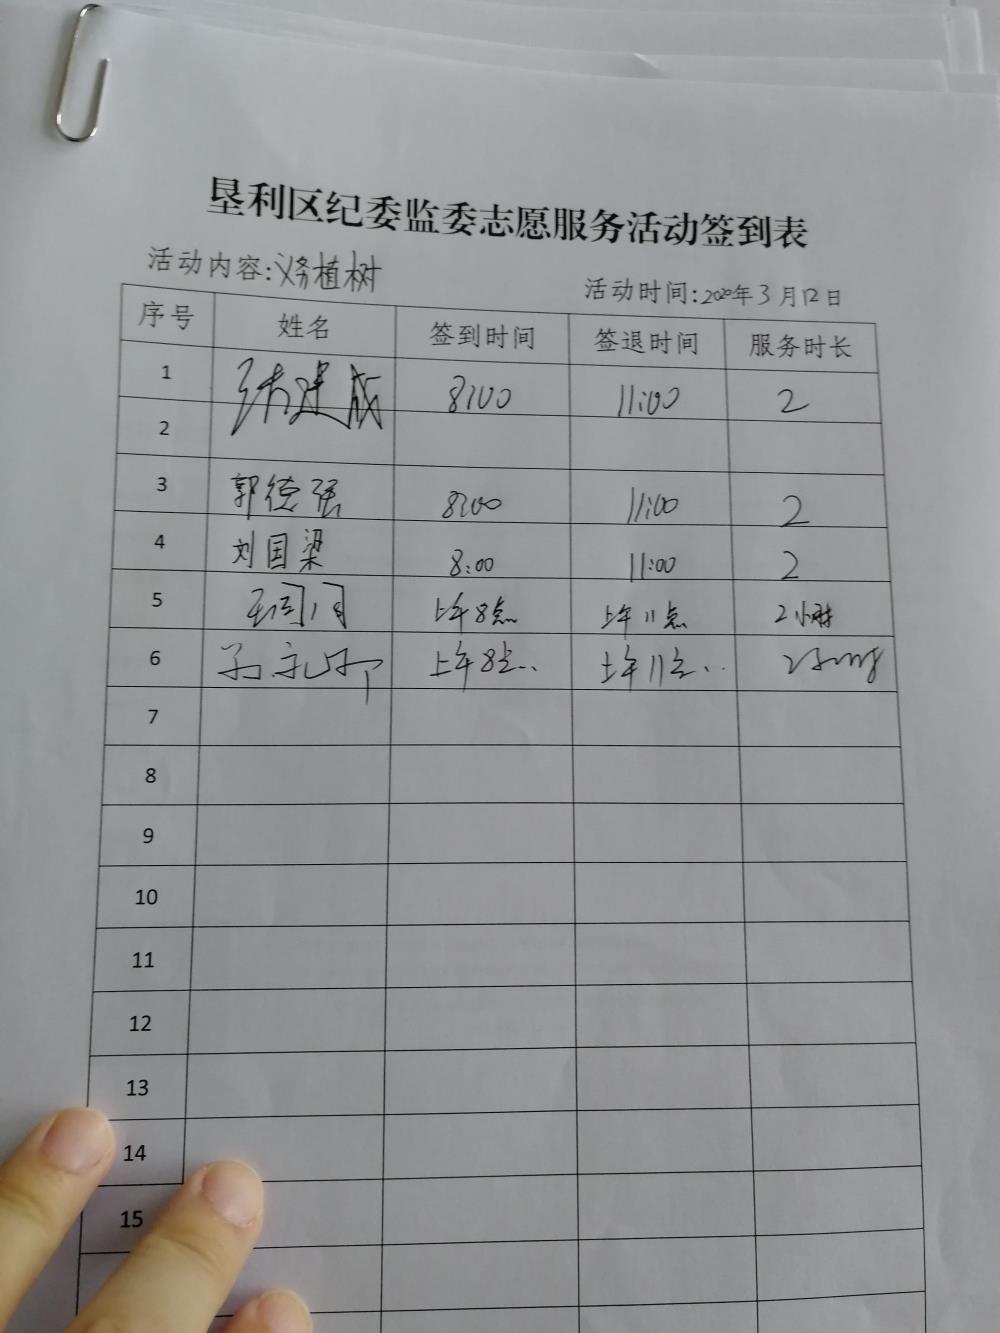 垦利区纪委监委志愿服务活动签到表
活动内容:义务植树 活动时间:2020年3月12日
序号 姓名 签到时间 签退时间 服务时长
1 张建成 8:00 11:00 2
2
3 郭德强 8:00 11:00 2
4 刘国梁 8:00 11:00 2
5 上午8点 上午11点 2小时
6 上午8点 上午11点 2小时
7
8
9
10
11
12
13
14
15